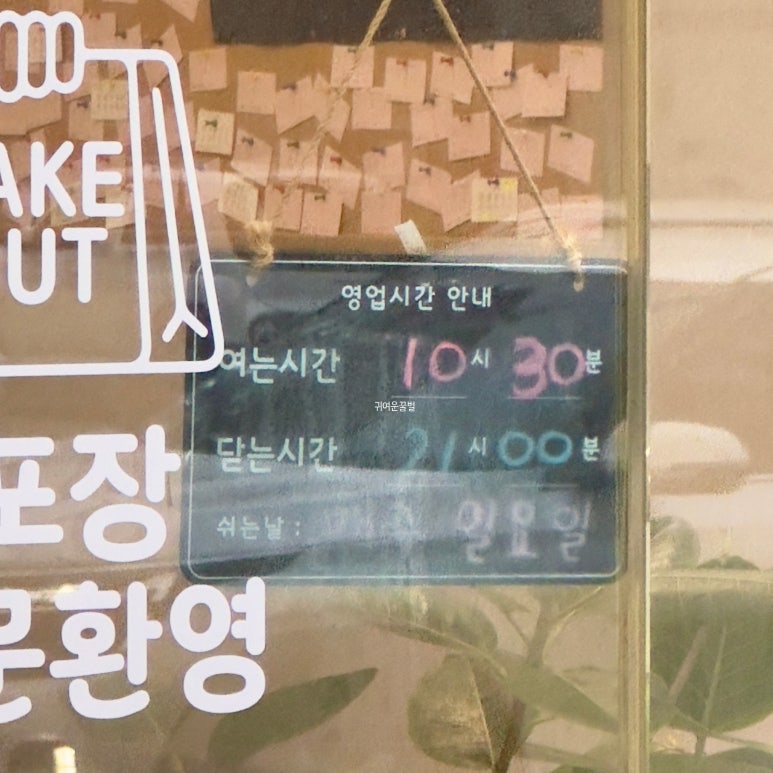 AKE
UT
포장
문환영
영업시간 안내
여는시간 10시 30분
닫는시간 21시 00분
쉬는날 : 매주 일요일
귀여운꿀벌